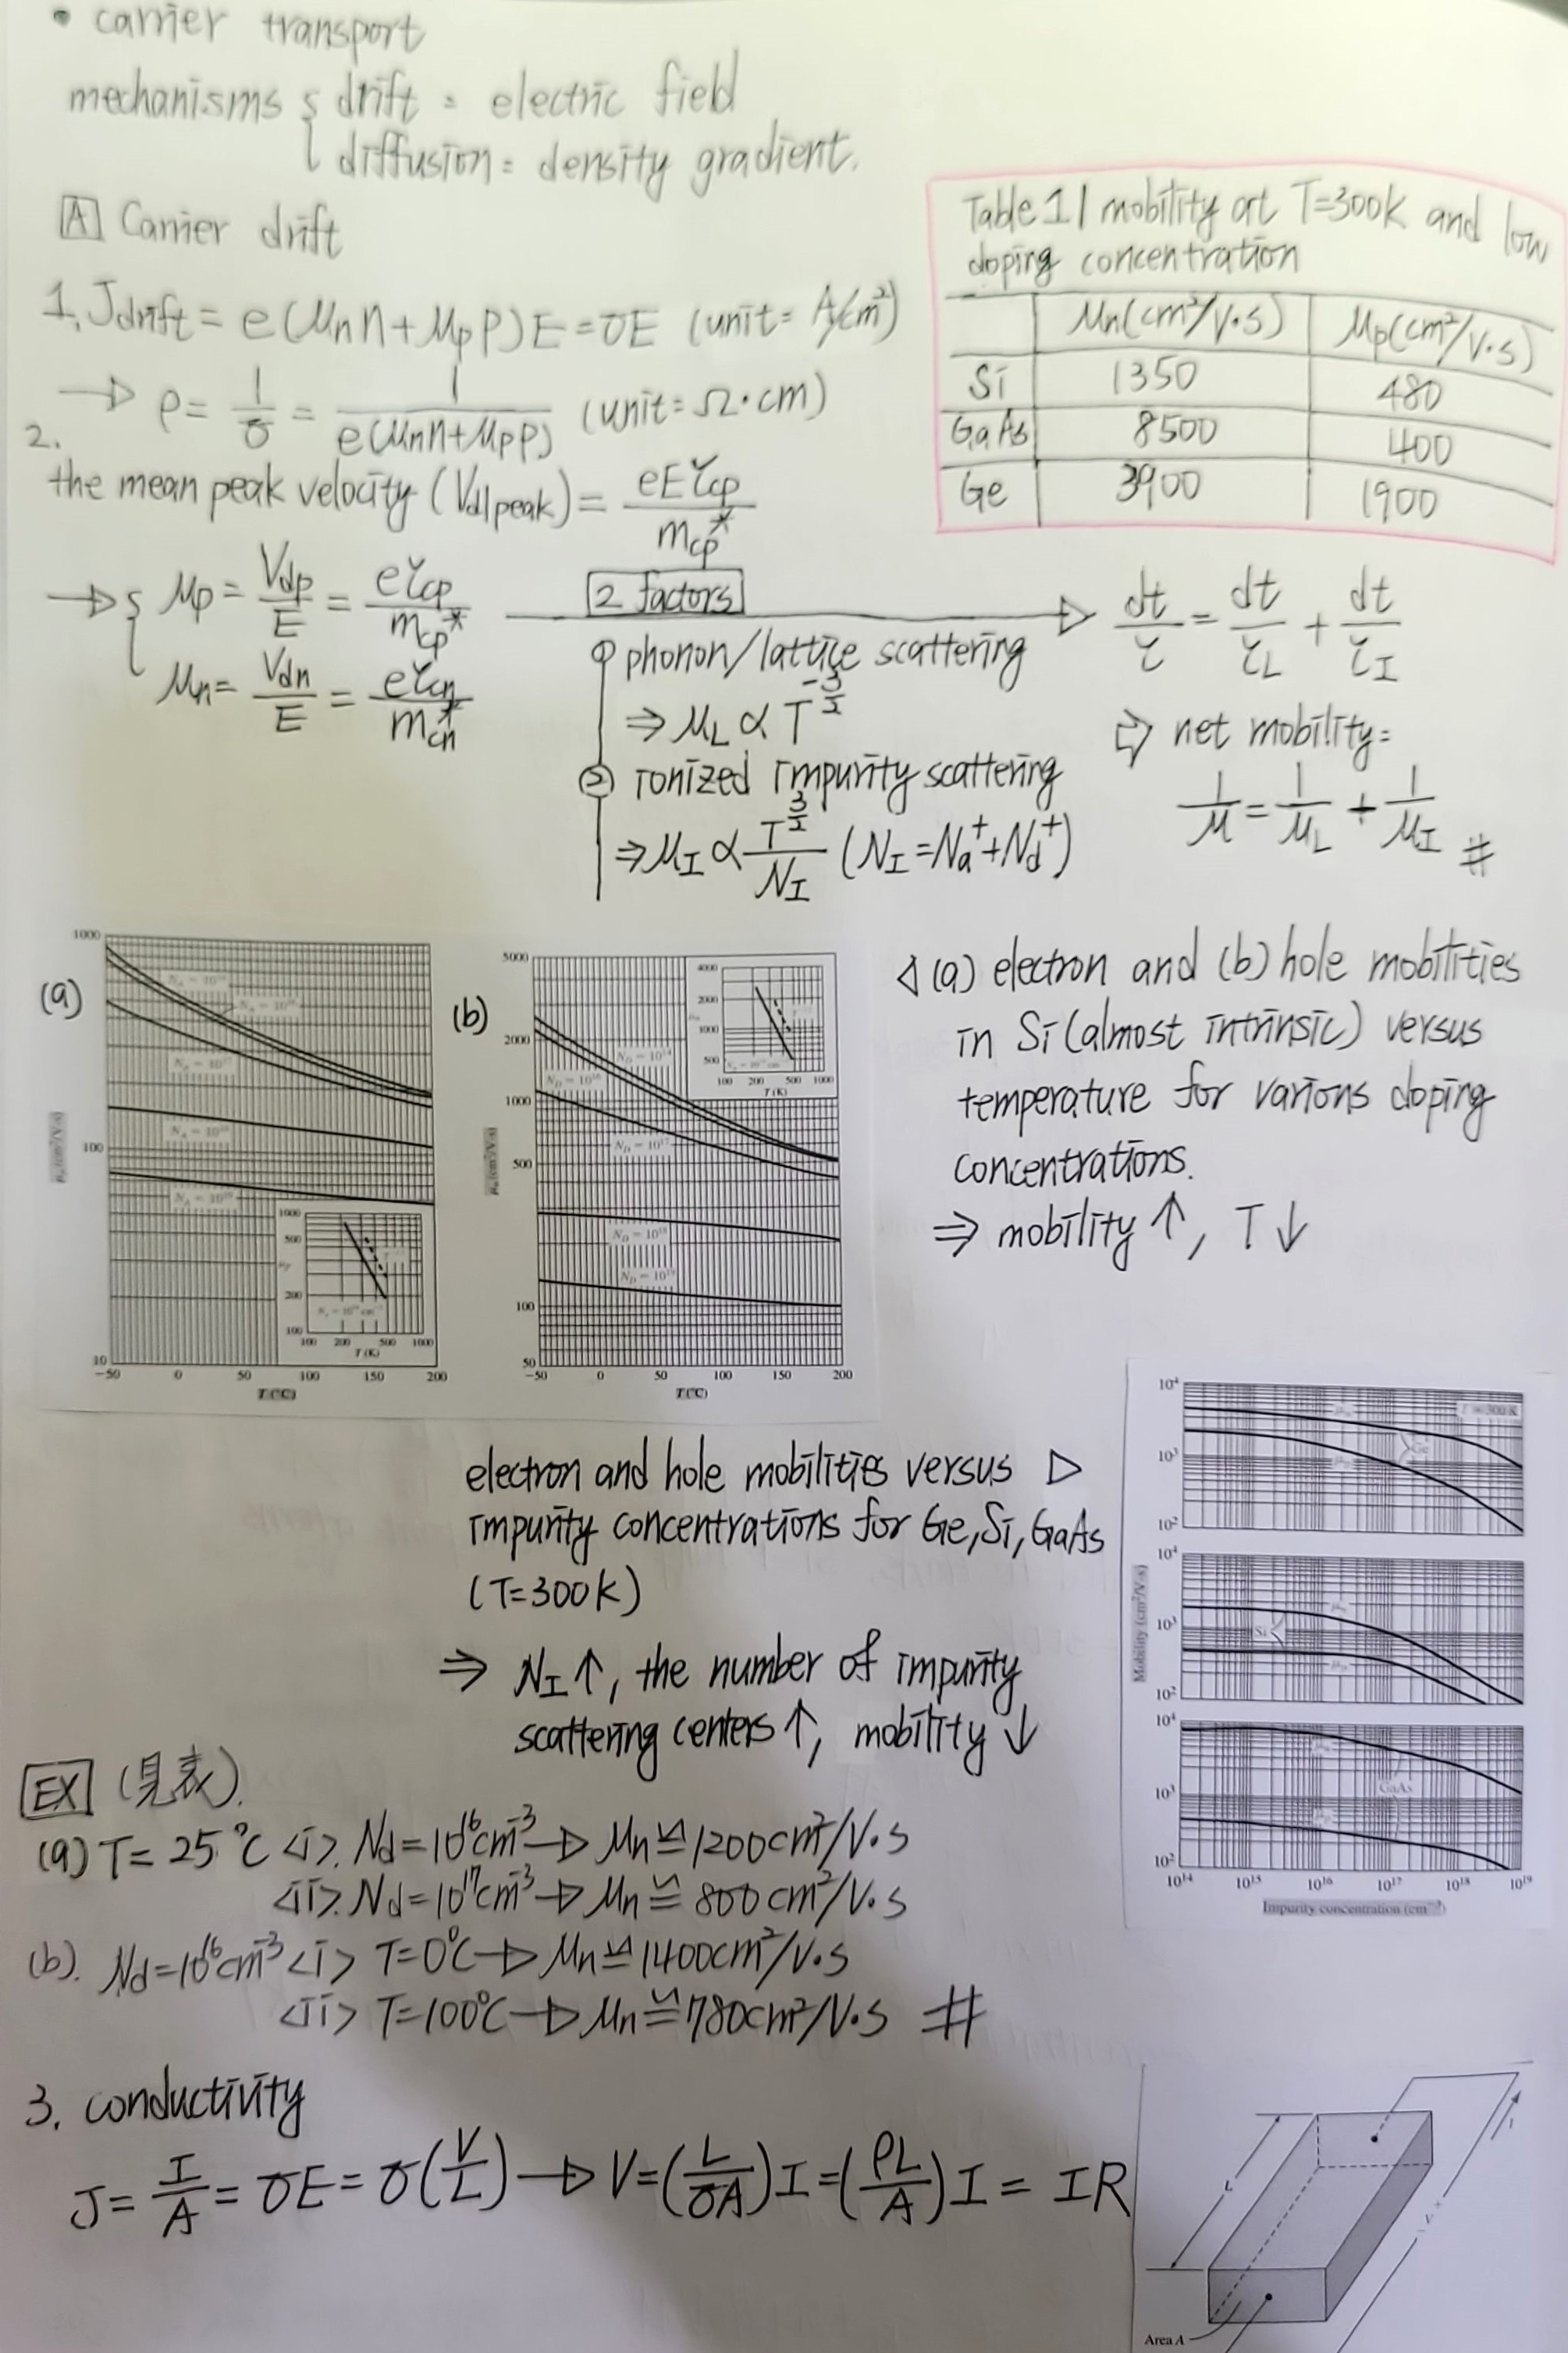 • carrier transport
mechanisms { drift = electric field
diffusion = density gradient.
A Carrier drift
1. Jdrift = e(μnn+μpp)E = σE (unit = A/cm²)
→ ρ = 1/σ = 1/e(μnn+μpp) (unit = Ω·cm)
2.
the mean peak velocity (Vd|peak) = eEτcp/mcp*
→ { μp = Vdp/E = eτcp/mcp*
μn = Vdn/E = eτcn/mcn*
2 factors
① phonon/lattice scattering
⇒ μL ∝ T^-3/2
② ionized impurity scattering
⇒ μI ∝ T^3/2/NI (NI = Na⁺+Nd⁺)
dt/τ = dt/τL + dt/τI
⇨ net mobility =
1/μ = 1/μL + 1/μI #
Table 1 | mobility at T=300K and low
doping concentration
μn(cm²/V·s) μp(cm²/V·s)
Si 1350 480
GaAs 8500 400
Ge 3900 1900
(a)
1000
100
10
NA = 10¹⁶
NA = 10¹⁷
NA = 10¹⁸
NA = 10¹⁹
-50 0 50 100 150 200
T(°C)
1000
500
200
100
100 200 500 1000
T (K)
(b)
5000
2000
1000
500
100
50
ND = 10¹⁴
ND = 10¹⁶
ND = 10¹⁷
ND = 10¹⁸
ND = 10¹⁹
-50 0 50 100 150 200
T(°C)
4000
2000
1000
500
100 200 500 1000
T (K)
◁ (a) electron and (b) hole mobilities
in Si (almost intrinsic) versus
temperature for varions doping
concentrations.
⇒ mobility ↑, T ↓
electron and hole mobilities versus ▷
impurity concentrations for Ge, Si, GaAs
(T=300K)
⇒ NI ↑, the number of impurity
scattering centers ↑, mobility ↓
10⁴
10³
10²
T = 300 K
μn
Ge
μp
10⁴
10³
10²
μn
Si
μp
10⁴
10³
10²
μn
GaAs
μp
Mobility (cm²/V-s)
10¹⁴ 10¹⁵ 10¹⁶ 10¹⁷ 10¹⁸ 10¹⁹
Impurity concentration (cm⁻³)
EX (見表).
(a) T = 25°C <i>. Nd = 10¹⁶cm⁻³ → μn ≌ 1200cm²/V·s
<ii>. Nd = 10¹⁷cm⁻³ → μn ≌ 800cm²/V·s
(b). Nd = 10¹⁶cm⁻³ <i> T=0°C → μn ≌ 1400cm²/V·s
<ii> T=100°C → μn ≌ 780cm²/V·s #
3. conductivity
J = I/A = σE = σ(V/L) → V = (L/σA)I = (ρL/A)I = IR
I
L
V
Area A